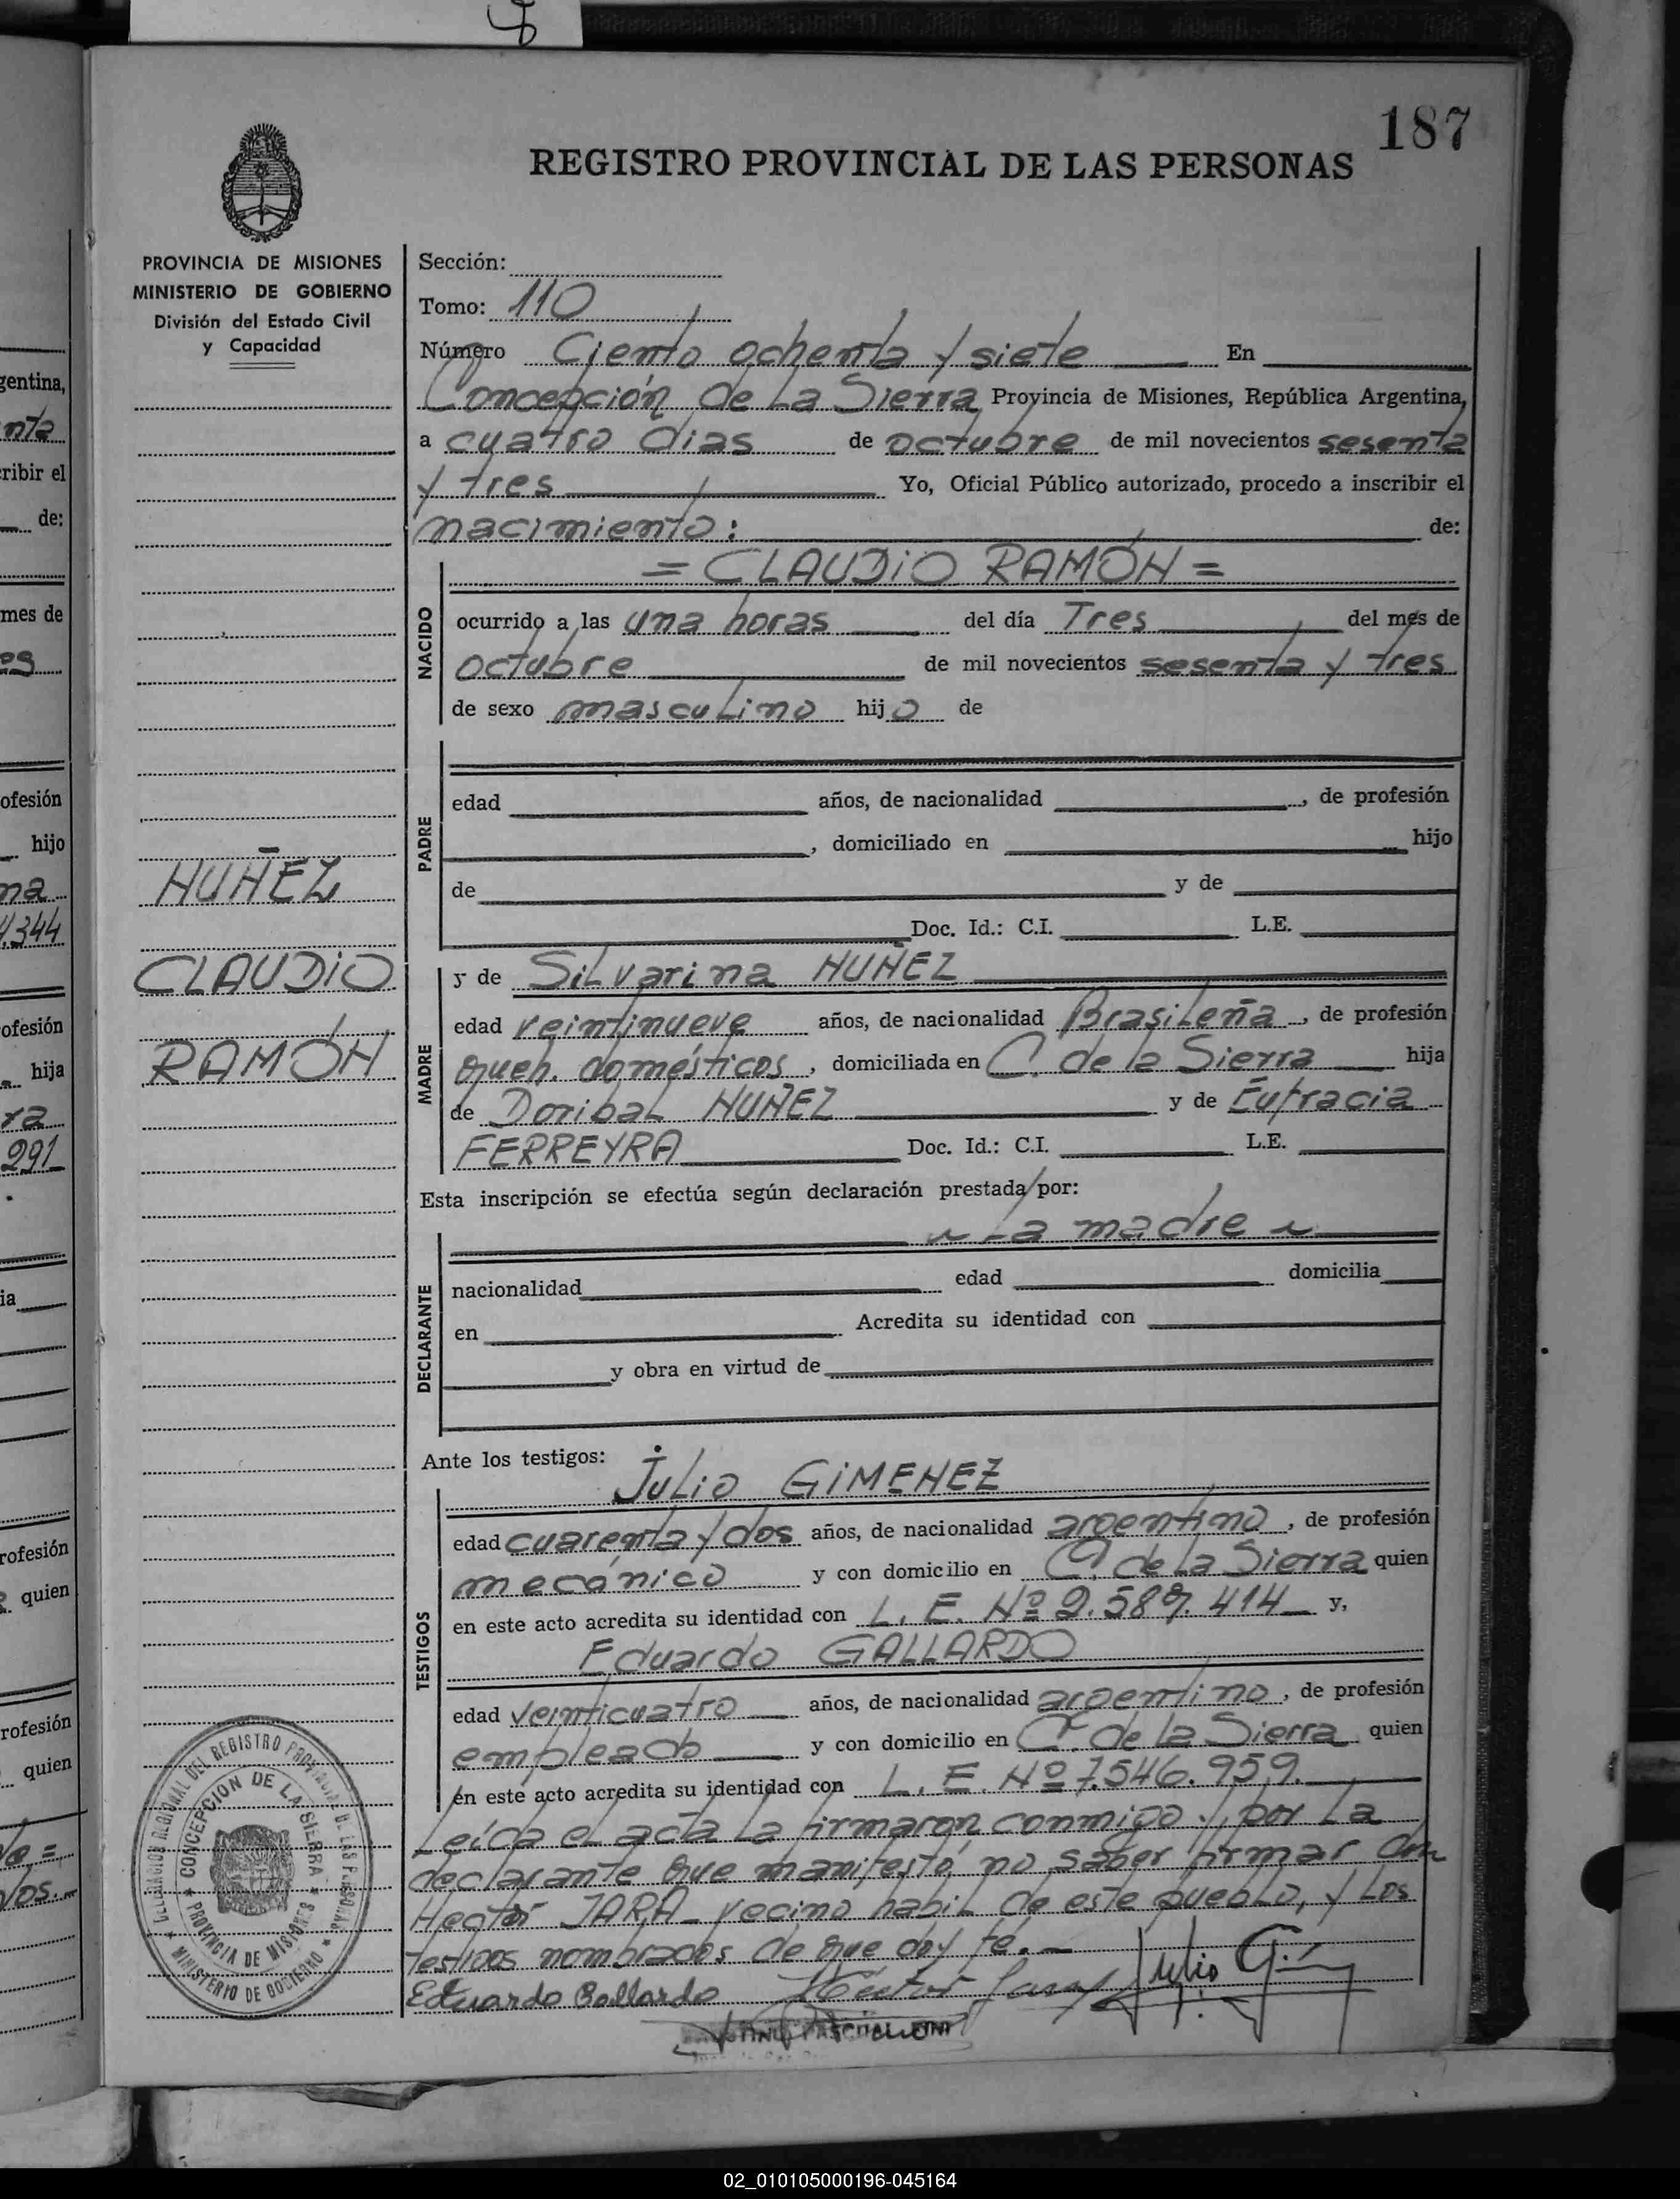 187
REGISTRO PROVINCIAL DE LAS PERSONAS
PROVINCIA DE MISIONES
MINISTERIO DE GOBIERNO
División del Estado Civil
y Capacidad
Sección:
Tomo: 110
Número Ciento ochenta y siete En
Concepción de La Sierra Provincia de Misiones, República Argentina,
a cuatro días de octubre de mil novecientos sesenta
y tres Yo, Oficial Público autorizado, procedo a inscribir el
nacimiento: de:
NACIDO
= CLAUDIO RAMÓN =
ocurrido a las una horas del día Tres del mes de
octubre de mil novecientos sesenta y tres
de sexo masculino hijo de
PADRE
edad años, de nacionalidad , de profesión
, domiciliado en hijo
de y de
Doc. Id.: C.I. L.E.
NUÑEZ
CLAUDIO
RAMÓN
MADRE
y de Silvarina NUÑEZ
edad veintinueve años, de nacionalidad Brasileña, de profesión
queh. domésticos, domiciliada en C. de la Sierra hija
de Doribal NUÑEZ y de Eufracia
FERREYRA Doc. Id.: C.I. L.E.
Esta inscripción se efectúa según declaración prestada por:
DECLARANTE
La madre
nacionalidad edad domicilia
en Acredita su identidad con
y obra en virtud de
Ante los testigos:
TESTIGOS
Julio GIMENEZ
edad cuarenta y dos años, de nacionalidad argentino, de profesión
mecánico y con domicilio en C. de La Sierra quien
en este acto acredita su identidad con L. E. Nº 2.589.414 y,
Eduardo GALLARDO
edad veinticuatro años, de nacionalidad argentino, de profesión
empleado y con domicilio en C. de La Sierra quien
en este acto acredita su identidad con L. E. Nº 7.546.959.
Leída el acta la firmaron conmigo y por La
declarante que manifestó no saber firmar don
Hector JARA vecino habil de este pueblo, y Los
testigos nombrados de que doy fé.
Eduardo Gallardo Héctor Jara Julio G
DELEGACION REGIONAL DEL REGISTRO PROVINCIAL DE LAS PERSONAS
CONCEPCION DE LA SIERRA
PROVINCIA DE MISIONES
MINISTERIO DE GOBIERNO
gentina,
nta
ribir el
de:
mes de
ofesión
hijo
na
4.344
ofesión
hija
ra
291
ia
rofesión
quien
rofesión
quien
02_010105000196-045164